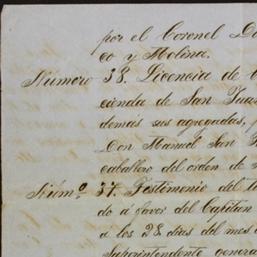 por el Coronel D
co y Molina.
Número 38. Licencia de
cienda de San Jua
demás sus agregadas,
Don Manuel San
caballero del orden de
Núm.º 37. Testimonio del
do á favor del Capitan
á los 28 dias del mes
Superintendente general